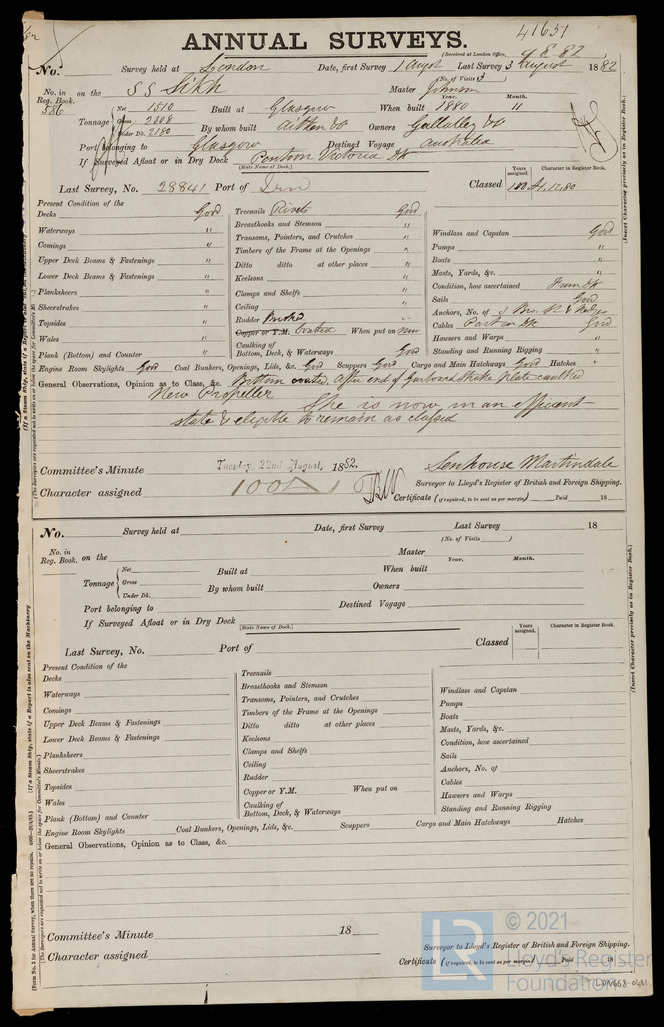 41651
ANNUAL SURVEYS.
(Received at London Office, 9.8.82)
No. Survey held at London Date, first Survey 1 Augst Last Survey 3 August 1882
(No. of Visits 3)
No. in Reg. Book. 586 on the SS Sikh Master Johnson
Tonnage Net 1510 Built at Glasgow When built Year. 1880 Month. 11
Gross 2308
Under Dk. 2180 By whom built Aitken &Co Owners Gellatley &Co
Port belonging to Glasgow Destined Voyage Australia
If Surveyed Afloat or in Dry Dock Pontoon Victoria Dk
(State Name of Dock.)
Last Survey, No. 28841 Port of Lon Classed Years assigned. 100 A1. 12.80 Character in Register Book.
Present Condition of the
Decks Good
Waterways "
Comings "
Upper Deck Beams & Fastenings "
Lower Deck Beams & Fastenings "
Planksheers "
Sheerstrakes "
Topsides "
Wales "
Plank (Bottom) and Counter "
Treenails Rivets Good
Breasthooks and Stemson "
Transoms, Pointers, and Crutches "
Timbers of the Frame at the Openings "
Ditto ditto at other places "
Keelsons "
Clamps and Shelfs "
Ceiling "
Rudder "
Copper or Y.M. Coated When put on now
Caulking of Bottom, Deck, & Waterways Good
Windlass and Capstan Good
Pumps "
Boats "
Masts, Yards, &c. "
Condition, how ascertained From Dk
Sails Good
Anchors, No. of
Cables Part on Dk Good
Hawsers and Warps "
Standing and Running Rigging "
Engine Room Skylights Good Coal Bunkers, Openings, Lids, &c. Good Scuppers Good Cargo and Main Hatchways Good Hatches "
General Observations, Opinion as to Class, &c. Bottom coated. After end of garboard strake plate caulked
New Propeller She is now in an efficient
state & eligible to remain as classed
Committee's Minute Tuesday, 22nd August, 1882. Senhouse Martindale
Character assigned 100A1 Surveyor to Lloyd's Register of British and Foreign Shipping.
Certificate (if required, to be sent as per margin) Paid 18
No. Survey held at Date, first Survey Last Survey 18
(No. of Visits )
No. in Reg. Book. on the Master
Tonnage Net Built at When built Year. Month.
Gross
Under Dk. By whom built Owners
Port belonging to Destined Voyage
If Surveyed Afloat or in Dry Dock
(State Name of Dock.)
Last Survey, No. Port of Classed Years assigned. Character in Register Book.
Present Condition of the
Decks
Waterways
Comings
Upper Deck Beams & Fastenings
Lower Deck Beams & Fastenings
Planksheers
Sheerstrakes
Topsides
Wales
Plank (Bottom) and Counter
Treenails
Breasthooks and Stemson
Transoms, Pointers, and Crutches
Timbers of the Frame at the Openings
Ditto ditto at other places
Keelsons
Clamps and Shelfs
Ceiling
Rudder
Copper or Y.M. When put on
Caulking of Bottom, Deck, & Waterways
Windlass and Capstan
Pumps
Boats
Masts, Yards, &c.
Condition, how ascertained
Sails
Anchors, No. of
Cables
Hawsers and Warps
Standing and Running Rigging
Engine Room Skylights Coal Bunkers, Openings, Lids, &c. Scuppers Cargo and Main Hatchways Hatches
General Observations, Opinion as to Class, &c.
Committee's Minute 18
Character assigned Surveyor to Lloyd's Register of British and Foreign Shipping.
Certificate (if required, to be sent as per margin) Paid 18
(Insert Character precisely as in Register Book.)
(Insert Character precisely as in Register Book.)
LR © 2021
Lloyd's Register
Foundation